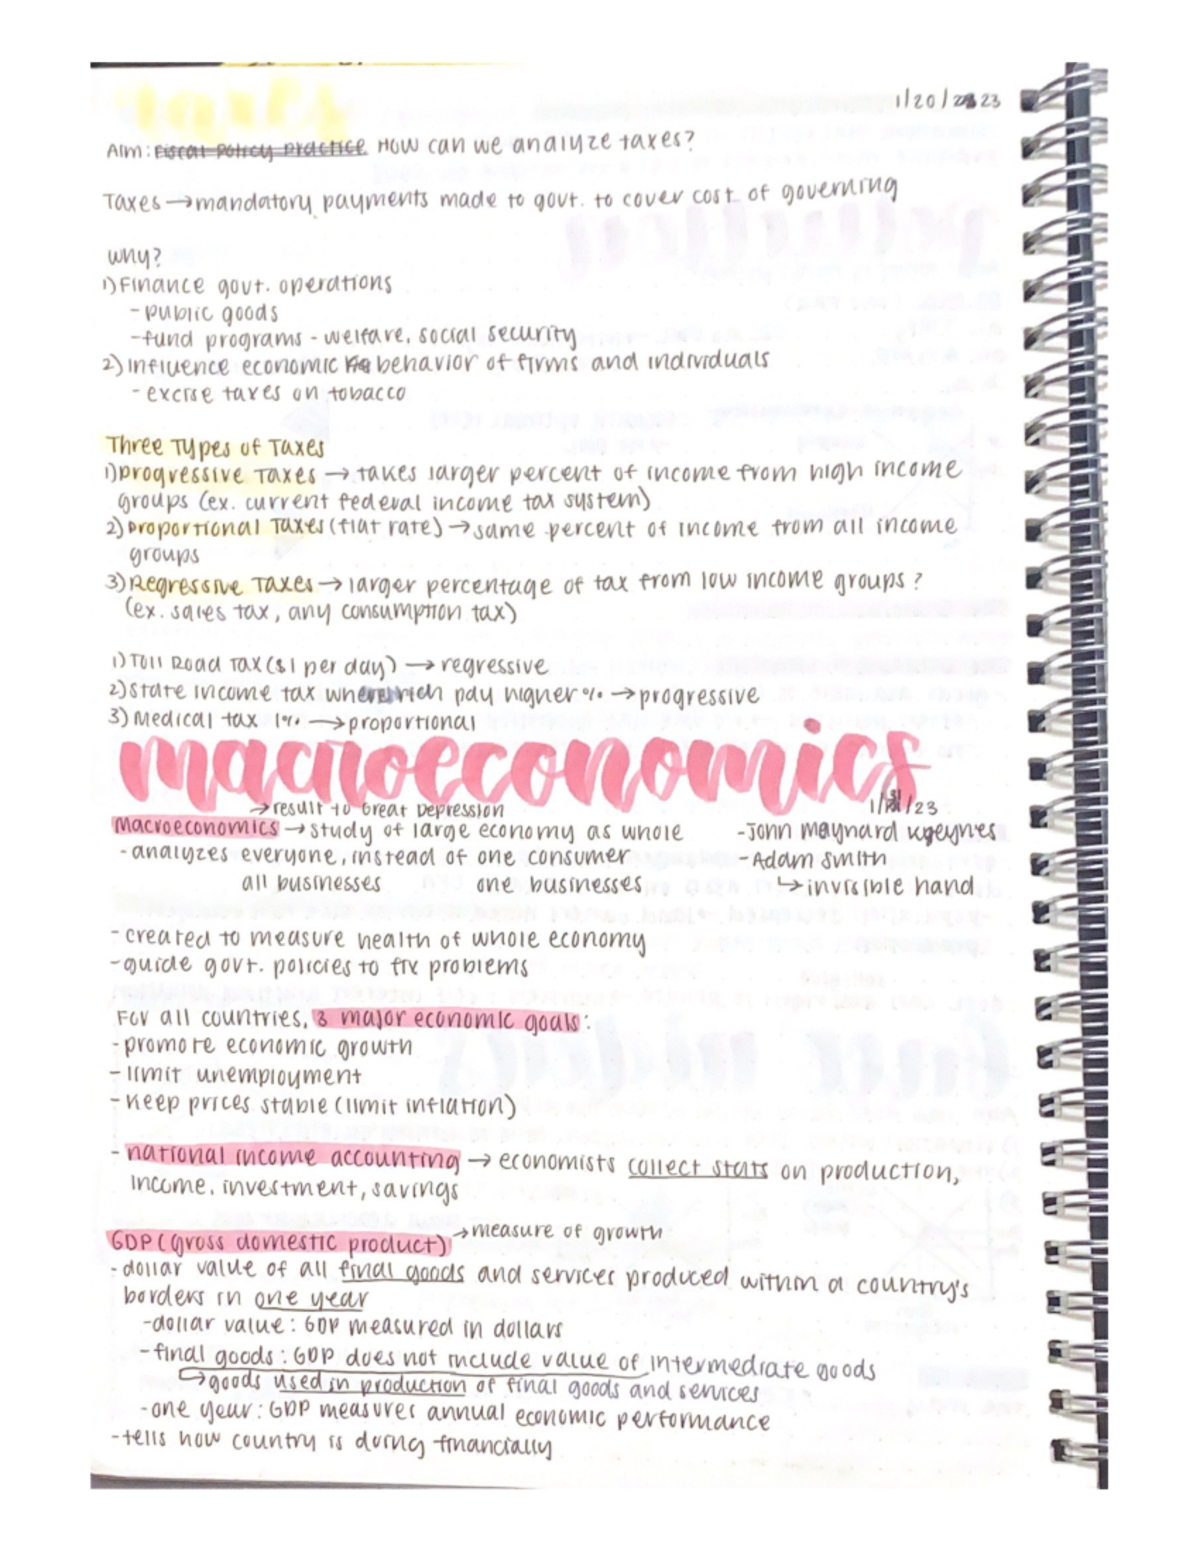 1/20/23
Aim: Fiscal Policy Practice How can we analyze taxes?
Taxes → mandatory payments made to govt. to cover cost of governing
why?
1) Finance govt. operations
- public goods
- fund programs - welfare, social security
2) Influence economic behavior of firms and individuals
- excise taxes on tobacco
Three Types of Taxes
1) Progressive Taxes → takes larger percent of income from high income
groups (ex. current federal income tax system)
2) Proportional Taxes (flat rate) → same percent of income from all income
groups
3) Regressive Taxes → larger percentage of tax from low income groups ?
(ex. sales tax, any consumption tax)
1) Toll Road Tax ($1 per day) → regressive
2) State income tax where rich pay higher % → progressive
3) Medical tax 1% → proportional
macroeconomics
→ result to Great Depression
1/ /23
Macroeconomics → study of large economy as whole
- John Maynard Keynes
- analyzes everyone, instead of one consumer
- Adam Smith
all businesses one businesses
↳ invisible hand
- created to measure health of whole economy
- guide govt. policies to fix problems
For all countries, 3 major economic goals:
- promote economic growth
- limit unemployment
- keep prices stable (limit inflation)
- national income accounting → economists collect stats on production,
income, investment, savings
GDP (gross domestic product) → measure of growth
- dollar value of all final goods and services produced within a country's
borders in one year
- dollar value: GDP measured in dollars
- final goods: GDP does not include value of intermediate goods
↳ goods used in production of final goods and services
- one year: GDP measures annual economic performance
- tells how country is doing financially